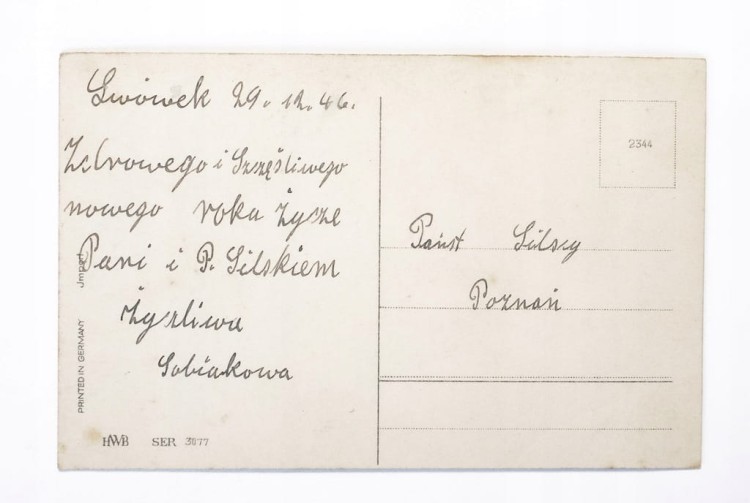 Lwówek 29. 12. 46.
Zdrowego i Szczęśliwego
nowego roku życze
Pani i P. Silskiem
życzliwa
Sobiakowa
2344
Państ Silscy
Poznań
PRINTED IN GERMANY Jmport
HWB SER 3077